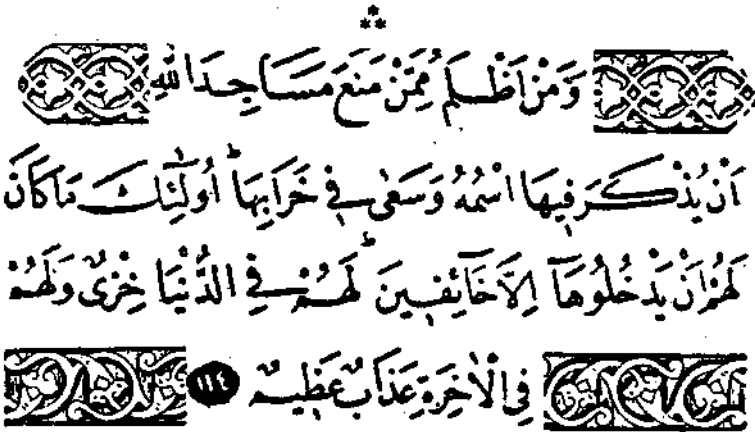 وَمَنْ اَظْلَمُ مِمَّنْ مَنَعَ مَسَاجِدَ اللّٰهِ
اَنْ يُذْكَرَ فِيهَا اسْمُهُ وَسَعٰى فِي خَرَابِهَاۜ اُولٰٓئِكَ مَا كَانَ
لَهُمْ اَنْ يَدْخُلُوهَٓا اِلَّا خَٓائِفِينَۜ لَهُمْ فِي الدُّنْيَا خِزْيٌ وَلَهُمْ
فِي الْاٰخِرَةِ عَذَابٌ عَظِيمٌ ١١٤